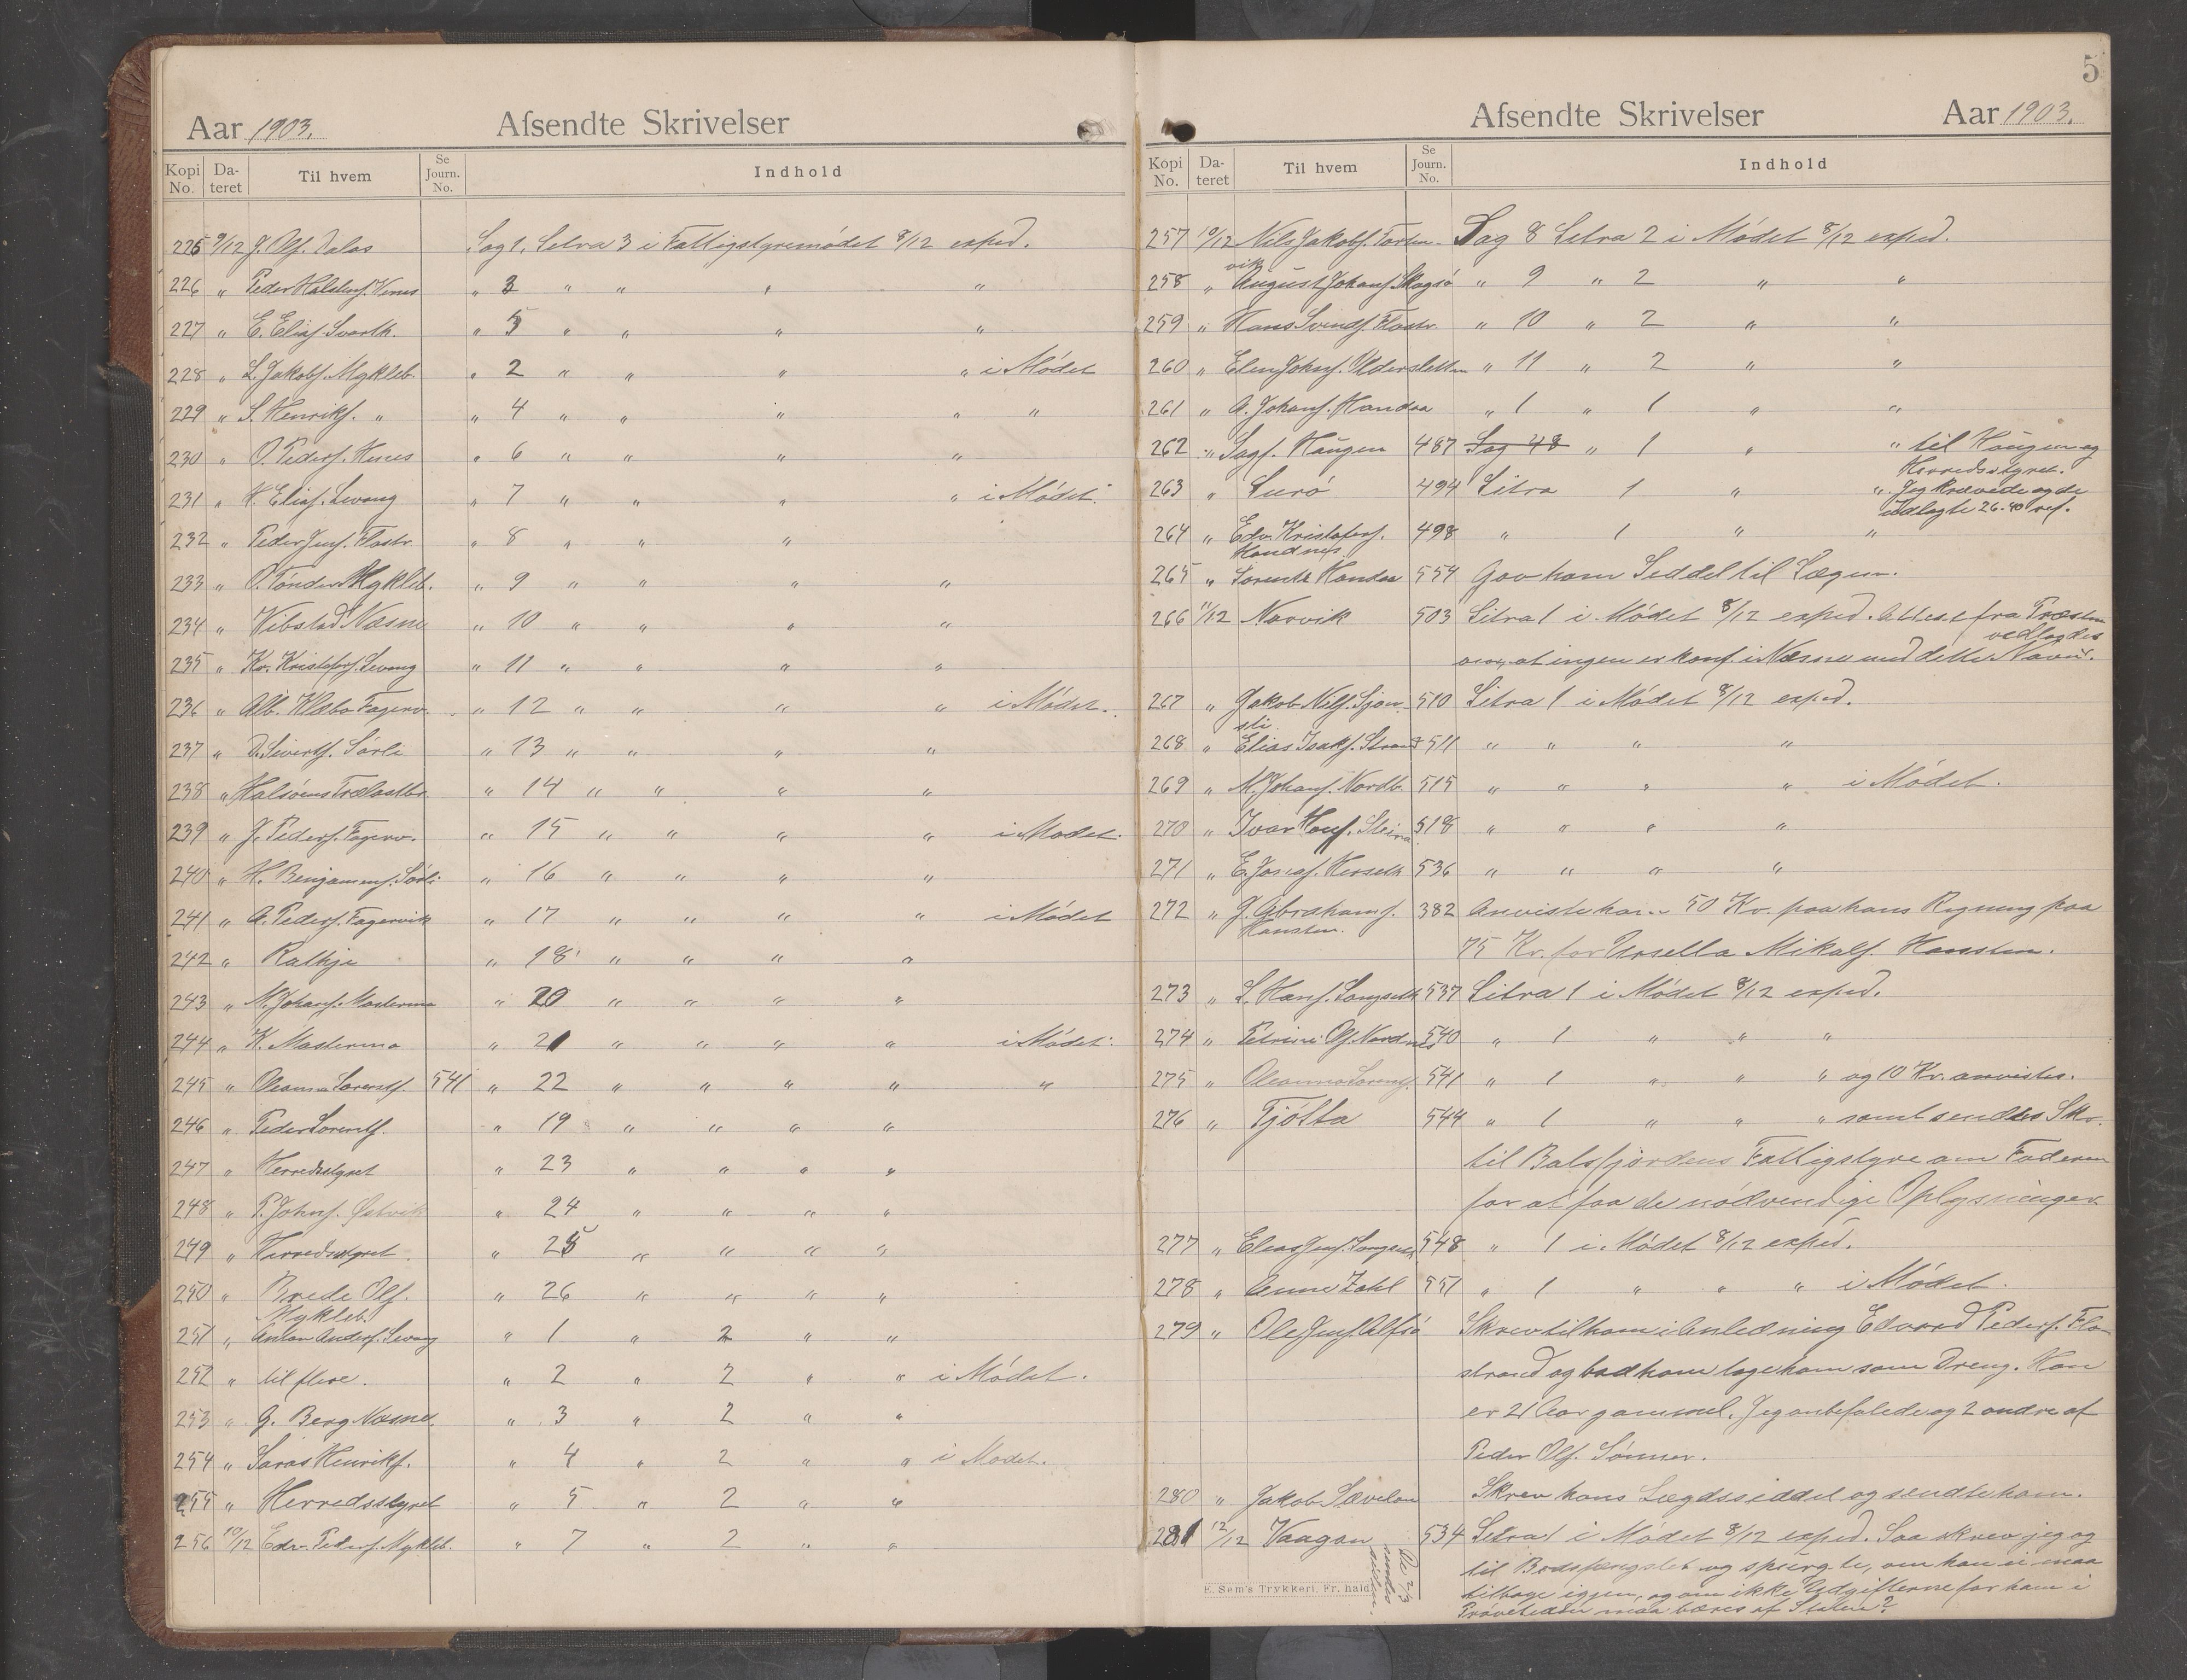 Aar 1903. Afsendte Skrivelser
Kopi No. Da-teret Til hvem Se Journ. No. Indhold
225 9/12 J. Olf. Dalos Sag 1, Litra 3 i Fattigstyremødet 8/12 exped.
226 " Peder " 3 " " " "
227 " E. Eliasf. Svarth. " 5 " " " "
228 " L. Jakobf. Mykleb. " 2 " " " " i Mødet
229 " S. Henrikf. " " 4 " " " " "
230 " O. Pederf. " 6 " " "
231 " H. Eliasf. Levang " 7 " " " " i Mødet.
232 " Peder Jenf. Flostr. " 8 " " "
233 " O. Tønder Mykleb. " 9 " " " "
234 " Vibstad Næsne " 10 " " " "
235 " Kr. Kristoferf. Levang " 11 " " " "
236 " Alb. Klæbo Fagerv. " 12 " " " " i Mødet.
237 " D. Sivertf. Sørli " 13 " " " "
238 " " 14 " " " "
239 " J. Pederf. Fagerv. " 15 " " " " i Mødet.
240 " H. Benjaminf. Sørli " 16 " " " "
241 " A. Pederf. Fagervik " 17 " " " " i Mødet
242 " Rathje " 18 " " " "
243 " N. Johanf. Mastermo " 20 " " " "
244 " K. Mastermo " 21 " " " " i Mødet.
245 " Oleanna Lorentf. 541 " 22 " " " " "
246 " Peder Lorentf. " 19 " " " "
247 " Herredsstyret " 23 " " " "
248 " P. Johnf. Østvik " 24 " " " "
249 " Herredsstyret " 25 " " " "
250 " Brede Olf. " 26 " " " "
Mykleb.
251 " Anton Anderf. Levang " 1 " 2 " "
252 " til flere. " 2 " 2 " " i Mødet.
253 " G. Berg Næsne. " 3 " 2 " "
254 " Henrikf. " 4 " 2 " " i Mødet.
255 " Herredsstyret " 5 " 2 " "
256 10/12 Edv. Pederf. Mykleb. " 7 " 2 " "
5
Afsendte Skrivelser Aar 1903.
Kopi No. Da-teret Til hvem Se Journ. No. Indhold
257 10/12 Nils Jakobf. Torten- Sag 8 Litra 2 i Mødet 8/12 exped.
vik
258 " August Johanf. Skogsø " 9 " 2 " "
259 " Hans Svendf. Flostr. " 10 " 2 " "
260 " Elen Johnf. " 11 " 2 " "
261 " A. Johanf. Handaa " 1 " 1 " "
262 " Sagf. Haugen 487 Sag 48 " 1 " " til Haugen og
Herredsstyret.
263 " Lurø 494 Litra 1 " " Jeg krævede og de
udlagte 26.40
264 " Edv. Kristoferf. 498 " 1 " "
Handnes
265 " Lorents Handaa 554 Gav ham Seddel til Lægen.
266 11/12 Narvik 503 Litra 1 i Mødet 8/12 exped. Attest fra Præsten
vedlagdes
om, at ingen er konf. i Næsne med dette Navn.
267 " Jakob Nilf. Sjon- 510 Litra 1 i Mødet 8/12 exped.
sli
268 " Elias Isakf. Strand 511 " " " "
269 " M. Johanf. Nordb. 515 " " " " i Mødet.
270 " Ivar Hanf. Steira 518 " " " "
271 " E. Jonaf. 536 " " " "
272 " J. Abrahamf. 382 Anviste ham 50 Kr. paa hans Regning paa
Hansten.
75 Kr. for Ursella Mikalf. Hansten.
273 " L. Hanf. Langseth 537 Litra 1 i Mødet 8/12 exped.
274 " Petrine Olf. Nordnes 540 " 1 " " "
275 " Oleanna Lorentf. 541 " 1 " " " og 10 Kr. anvistes.
276 " Tjøtta 544 " 1 " " " samt sendtes Skr.
til Balsfjordens Fattigstyre om Faderen
for at faa de nødvendige Oplysninger.
277 " Elias Jenf. Langseth 548 " 1 i Mødet 8/12 exped.
278 " Anne Zahl 551 " 1 " " " i Mødet.
279 " Ole Jenf. Alfsø Skrev til ham i Anledning Edvard Pederf. Flo-
strand og bad ham tage ham som Dreng. Han
er 21 Aar gammel. Jeg anbefalede og 2 andre af
Peder Olf. Sønner.
280 " Jakob Skrev hans Lægdsseddel og sendte ham.
281 12/12 Vaagan 534 Litra 1 i Mødet 8/12 exped. Saa skrev jeg og
til Bodsfængslet og spurgte, om han ei maa
tilbage igjen, og om ikke Udgifterne for ham i
Prøvetiden maa bæres af Staten?
E. Sem's Trykkeri, Fr. hald.